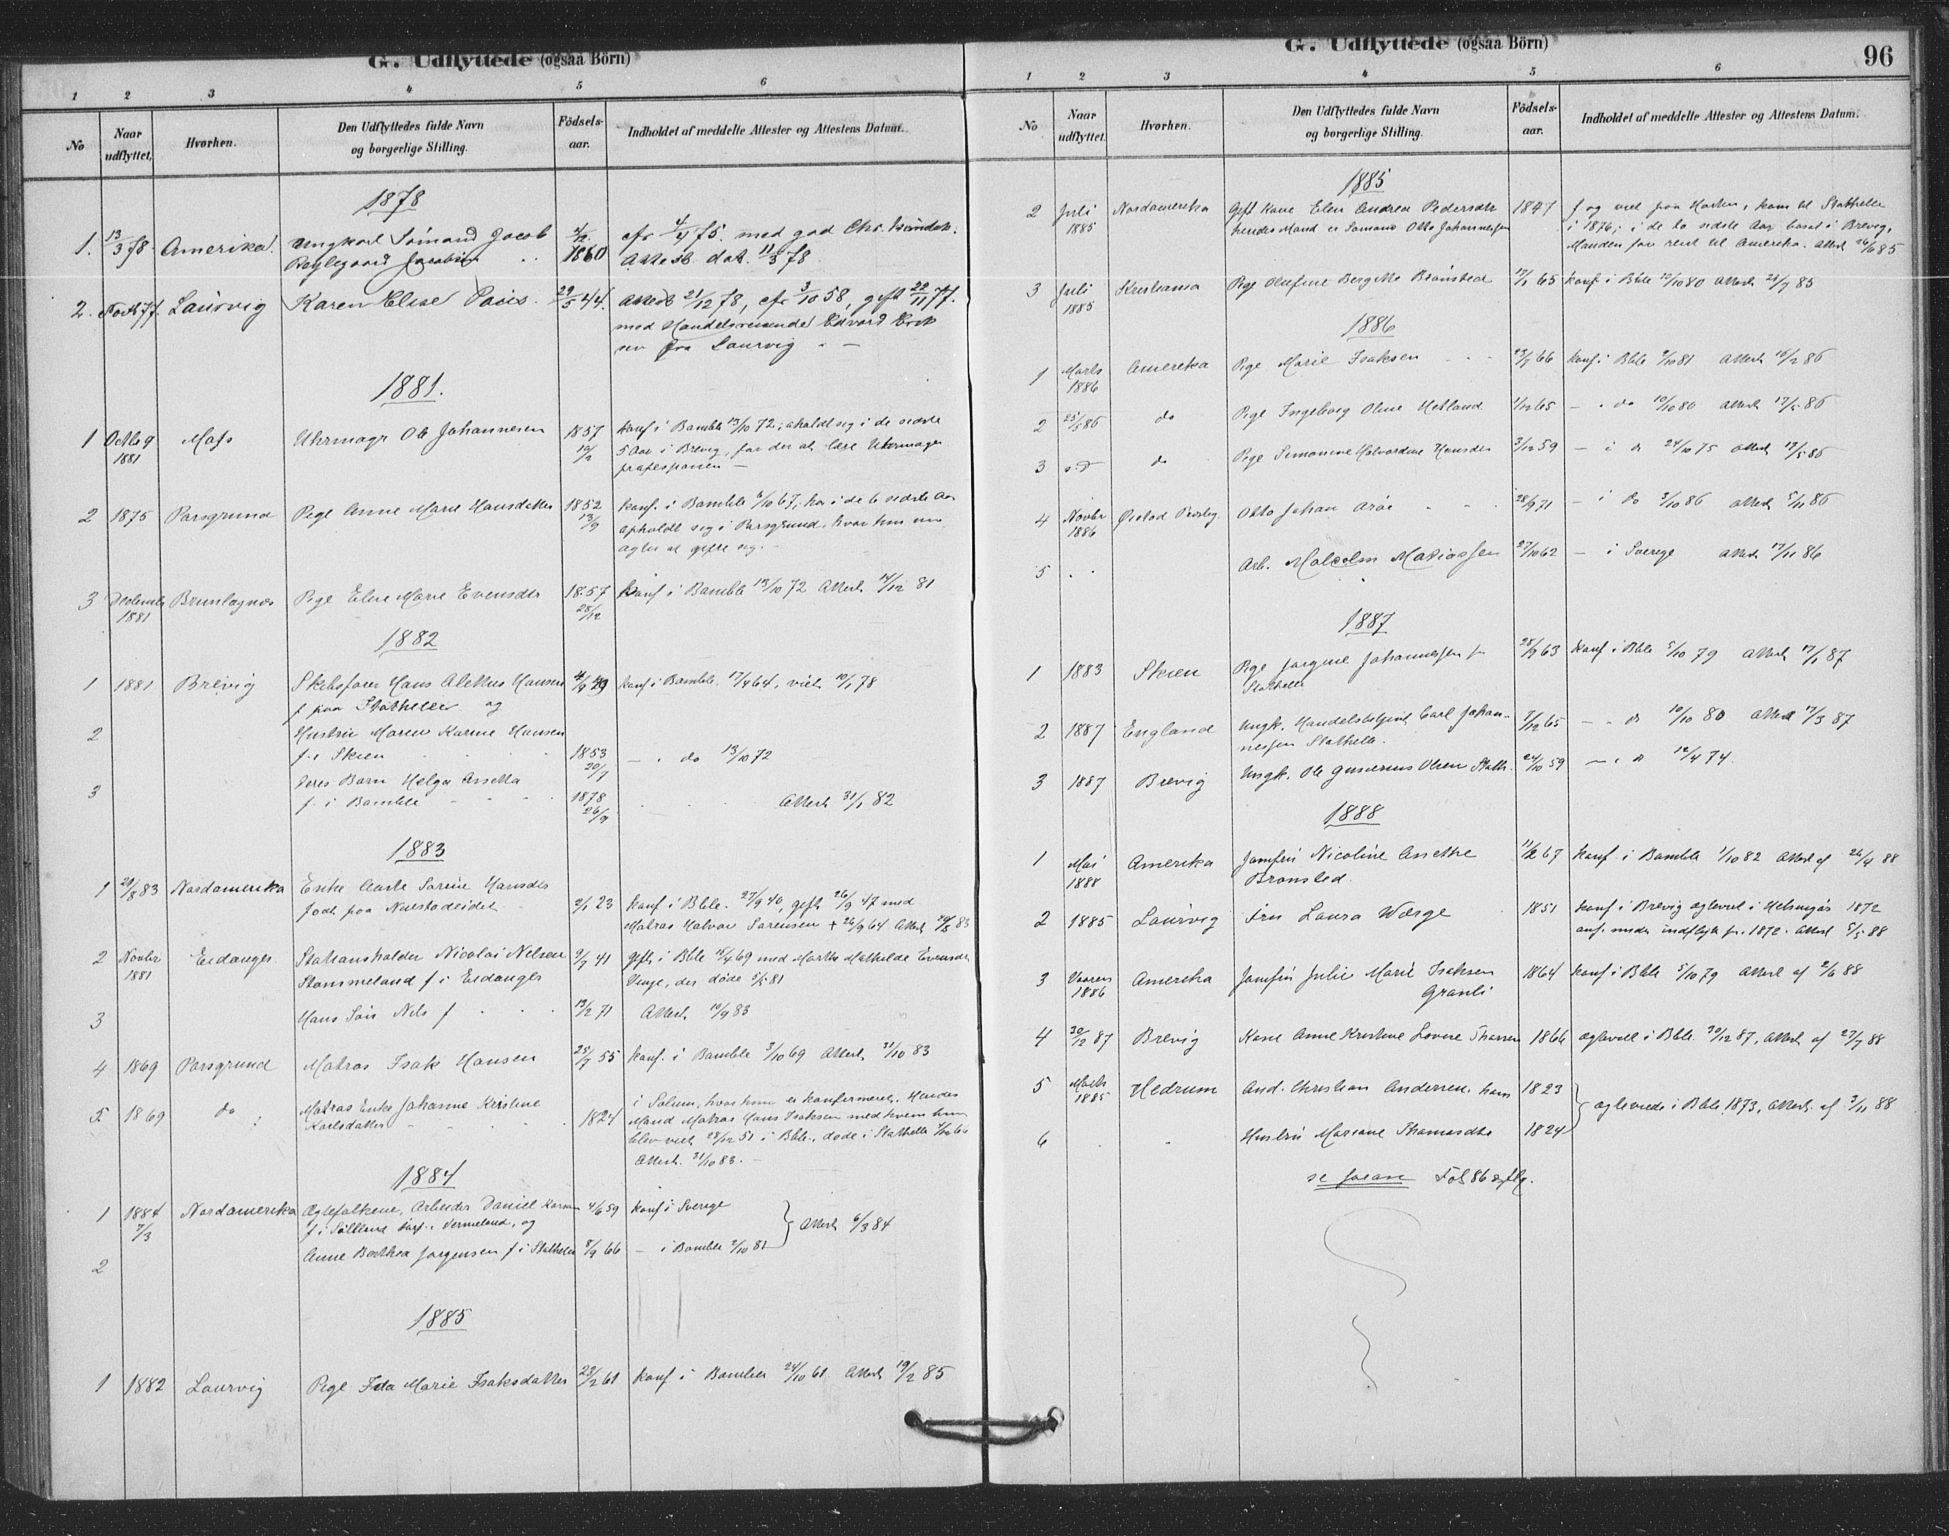 G. Udflyttede (ogsaa Börn)
1 2 3 4 5 6
No
Naar udflyttet.
Hvorhen.
Den Udflyttedes fulde Navn og borgerlige Stilling.
Födsels-aar.
Indholdet af meddelte Attester og Attestens Datum.
1878
1. 13/3 78 Amerika. Ungkarl Sömand Jacob 4/12 cfr 4/4 75. med god Chr.
1860 Attest dat. 11/3 78.
2. 77. Laurvig Karen Elise 29/5 44. Attest 21/12 78, cfr 3/10 58, gift 22/11 77.
med Handelsreisende Edvard
sen fra Laurvig
1881.
1 Octb 9 Moss Uhrmagr Ole Johannesen 1857 konf i Bamble 13/10 72; opholdt sig i de sidste
1881 19/2 5 Aar i Brevig, for der at lære Uhrmager
professionen —
2 1875 Porsgrund Pige Anne Marie Hansdatter 1852 konf. i Bamble 6/10 67, har i de 6 sidste Aar
13/9 opholdt sig i Porsgrund, hvor hun nu
agter at gifte sig. —
3 Decemb Brunlagnæs Pige Elen Marie Evensdtr 1857 konf i Bamble 13/10 72 Attest 14/12 81
1881 28/12
1882
1 1881 Brevig Skibsfører Hans Alettus Hansen 4/9 49 konf i Bamble 17/4 64, viet 10/1 78
f paa Stathelle og
2 Hustru Maren Karine Hansen
f. i Skien 1853 — " do 13/10 72
20/7
3 deres Barn Helga Anetta
f. i Bamble 1878 Attest 31/1 82
26/9
1883
1 29/8 83 Nordamerika Enke Sörine Hansdtr
født paa 2/1 23 konf i Bble. 27/9 40, gift 26/9 47 med
Matros Halvor Sørensen + 26/9 64 Attest 29/8 83
2 Novbr Eidanger Stationsholder Nicolai Nelsen 9/7 41 gift i Bble 15/4 69 med Marthe Mathilde Evensdtr
1881 Stammeland f i Eidanger , der døde 5/5 81
3 Hans Søn Nils f 13/2 71 Attest 14/9 83
4 1869 Porsgrund Matros Isak Hansen 25/7 55 konf. i Bamble 3/10 69 Attest 31/10 83
5 1869 do Matros Enke Johanne Kristine i Solum, hvor hun er konfirmeret. Hendes
Karlsdatter 1824 Mand Matros Hans Isaksen med hvem hun
blev viet 28/12 51 i Bble., døde i Stathelle
Attest. 31/10 83. —
1884
1 1884 Nordamerika Ægtefolkene, Arbeider Daniel 4/6 59 konf i Sverige
7/3 f i , Vermeland, og } Attest 6/3 84
2 Anne Bertea Jørgensen f i Stathelle 8/9 66 — i Bamble 2/10 81
1885
1 1882 Laurvig Pige Ida Marie Isaksdatter 23/2 61 konf i Bamble 24/10 61 Attest 19/2 85
G. Udflyttede (ogsaa Börn) 96
1 2 3 4 5 6
No
Naar udflyttet.
Hvorhen.
Den Udflyttedes fulde Navn og borgerlige Stilling.
Födsels-aar.
Indholdet af meddelte Attester og Attestens Datum.
1885
2 Juli Nordamerika Gift Kone Elen Andrea Pedersdtr 1847 f og viet paa Horten, kom til Stathelle
1885 hendes Mand er Sømand Otto Johannessen i 1876; i de to sidste Aar boet i Brevig,
Manden før reist til Amerika. Attest 26/6 85
3 Juli Kristiania Pige Olufine Bergitte Brönsted 17/1 65 konf i Bble 10/10 80 Attest 21/7 85
1885
1886
1 Marts Amerika Pige Marie Isaksen 23/7 66 konf i Bble 9/10 81 Attest 15/2 86
1886
2 25/5 86 do Pige Ingeborg Oline Hetland 1/12 65 — " do 10/10 80 Attest 17/5 86
3 do Pige Simonine Halvordine Hansdtr 3/12 59 — i do 24/10 75 Attest 17/5 86
4 Novbr Otto Johan Aröe 28/9 71 — i do 3/10 86 Attest 5/11 86
1886
5 " " Arb. Malcolm Matiassen 27/10 62 — i Sverige Attest 17/11 86
1887
1 1883 Skien Pige Jørgine Johannessen fr 28/9 63 konf i Bble 5/10 79 Attest 17/1 87
Stathelle
2 1887 England Ungk. Handelsbetjent Carl Johan- 7/12 65 — " do 10/10 80 Attest 17/3 87
nessen Stathelle.
3 1887 Brevig Ungk. Ole Gunerius Olsen Stath. 24/10 59 — " do 12/4 74.
1888
1 Mai Amerika Jomfru Nicoline Anethe 11/2 67 konf i Bamble 1/10 82 Attest af 26/4 88
1888 Brönsted.
2 1885 Laurvig Fru Laura Wærge 1851 konf i Brevig ogleviet i Helsingør 1872
anf. under indflytt fr. 1872. Attest 5/5 88
3 Vaaren Amerika Jomfru Julie Marie Isaksen 1864 konf i Bble 5/10 79 Attest af 2/6 88
1886 Granli
4 30/12 87 Brevig Kone Anne Kristine Lovise 1866 ogleviet i Bble. 30/12 87, Attest af 27/7 88
5 Marts Hedrum And. Christian Andersen, hans 1823
1885 } ogleviede i Bble 1873, Attest af 3/11 88
6 " " Hustru Mariane Thomasdtr 1824
se foran Fol 86 & flg.